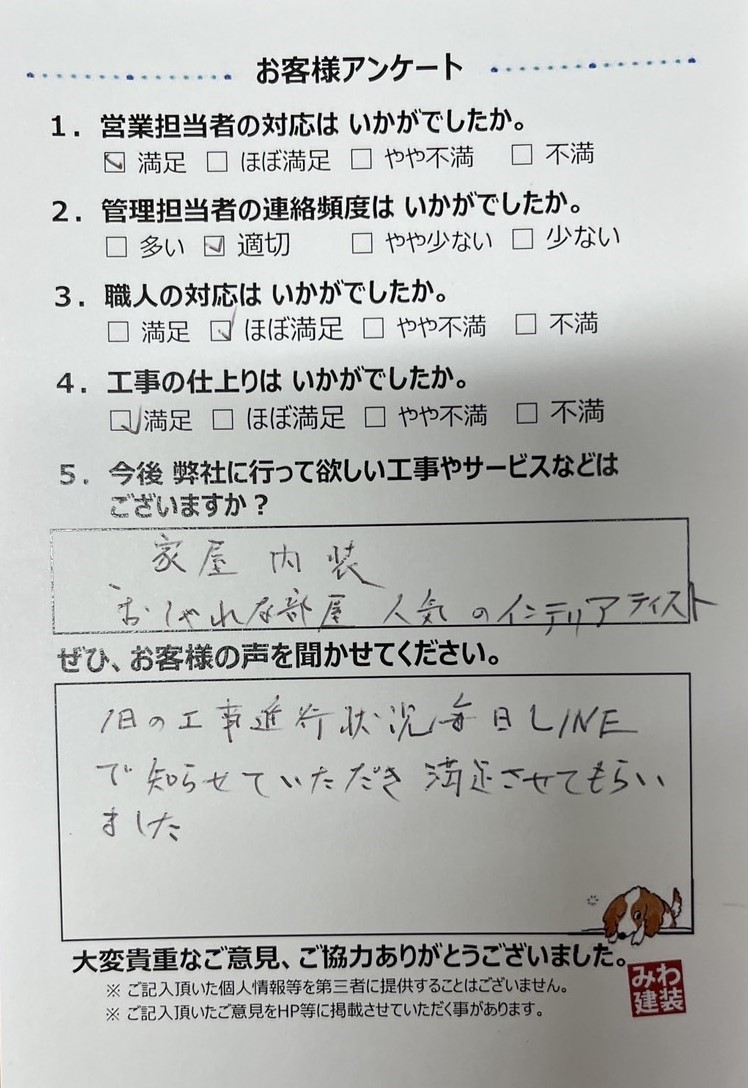 お客様アンケート
1. 営業担当者の対応は いかがでしたか。
☑ 満足 □ ほぼ満足 □ やや不満 □ 不満
2. 管理担当者の連絡頻度は いかがでしたか。
□ 多い ☑ 適切 □ やや少ない □ 少ない
3. 職人の対応は いかがでしたか。
□ 満足 ☑ ほぼ満足 □ やや不満 □ 不満
4. 工事の仕上りは いかがでしたか。
☑ 満足 □ ほぼ満足 □ やや不満 □ 不満
5. 今後 弊社に行って欲しい工事やサービスなどは
ございますか？
家屋内装
おしゃれな部屋 人気のインテリアテイスト
ぜひ、お客様の声を聞かせてください。
1日の工事進行状況毎日LINE
で知らせていただき 満足させてもらい
ました
大変貴重なご意見、ご協力ありがとうございました。
※ ご記入頂いた個人情報等を第三者に提供することはございません。
※ ご記入頂いたご意見をHP等に掲載させていただく事があります。
みわ
建装